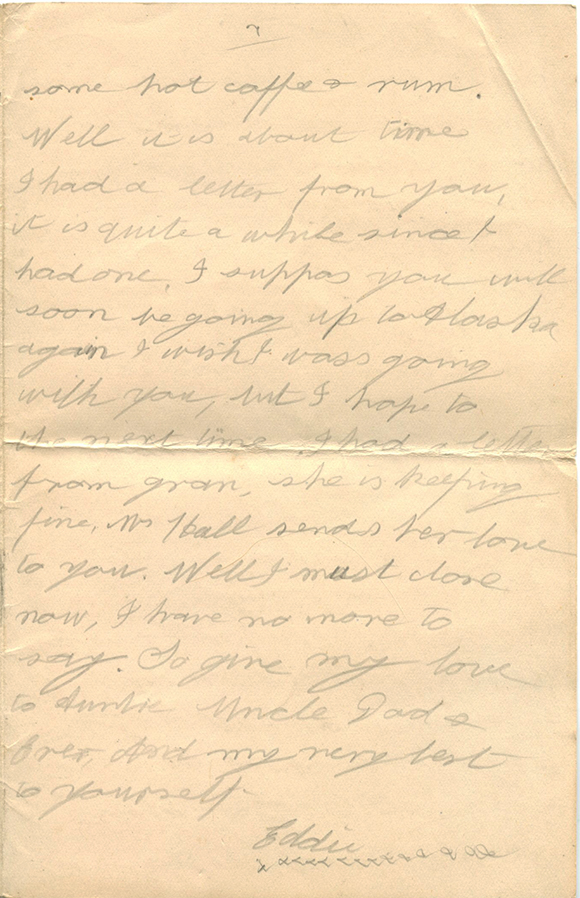 some hot coffee & rum.
Well it is about time
I had a letter from you,
it is quite a while since I
had one. I suppos you will
soon be going up to Alaska
again I wish I wass going
with you, but I hope to
the next time. I had a letter
from gran, she is keeping
fine. Mrs Hall sends her love
to you. Well I must close
now, I have no more to
say. So give my love
to Auntie Uncle Dad &
And my very best
to yourself
Eddie